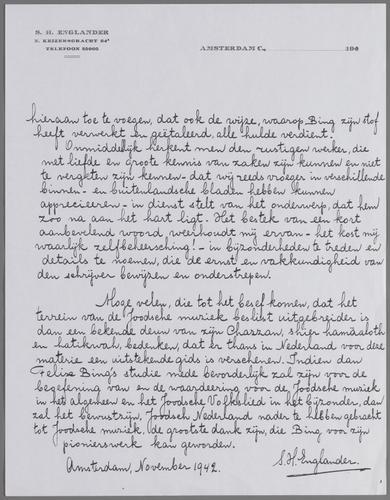 S. H. ENGLANDER
N. KEIZERSGRACHT 84ᴬ
TELEFOON 55065
AMSTERDAM C., 194
hieraan toe te voegen, dat ook de wijze, waarop Bing zijn stof
heeft verwerkt en geëtaleerd, alle hulde verdient.
Onmiddelijk herkent men den rustigen werker, die
met liefde en groote kennis van zaken zijn kunnen en niet
te vergeten zijn kennen - dat wij reeds vroeger in verschillende
binnen- en buitenlandsche bladen hebben kunnen
apprecieeren - in dienst stelt van het onderwerp, dat hem
zoo na aan het hart ligt. Het bestek van een kort
aanbevelend woord, weerhoudt mij ervan - het kost mij
waarlijk zelfbeheersching! - in bijzonderheden te treden en
details te noemen, die de ernst en vakkundigheid van
den schrijver bewijzen en onderstrepen.
Moge velen, die tot het besef komen, dat het
terrein van de Joodsche muziek beslist uitgebreider is
dan een bekende deun van zijn Chazzan, shier hamäaloth
en hatikwah, bedenken, dat er thans in Nederland voor deze
materie een uitstekende gids is verschenen. Indien dan
Felix Bing's studie mede bevorderlijk zal zijn voor de
beoefening van en de waardeering vóor de Joodsche muziek
in het algemeen en het Joodsche Volkslied in het bijzonder, dan
zal het bewustzijn, Joodsch Nederland nader te hebben gebracht
tot Joodsche muziek, de grootste dank zijn, die Bing voor zijn
pionierswerk kan geworden.
Amsterdam, November 1942. S. H. Englander.